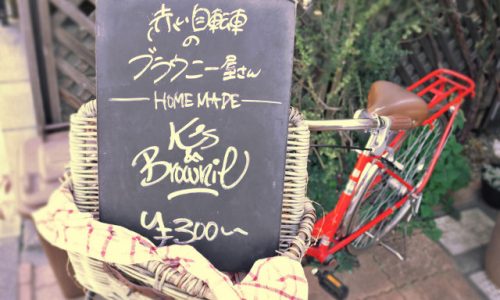 赤い自転車
の
ブラウニー屋さん
HOME MADE
K's
Brownie
¥300〜